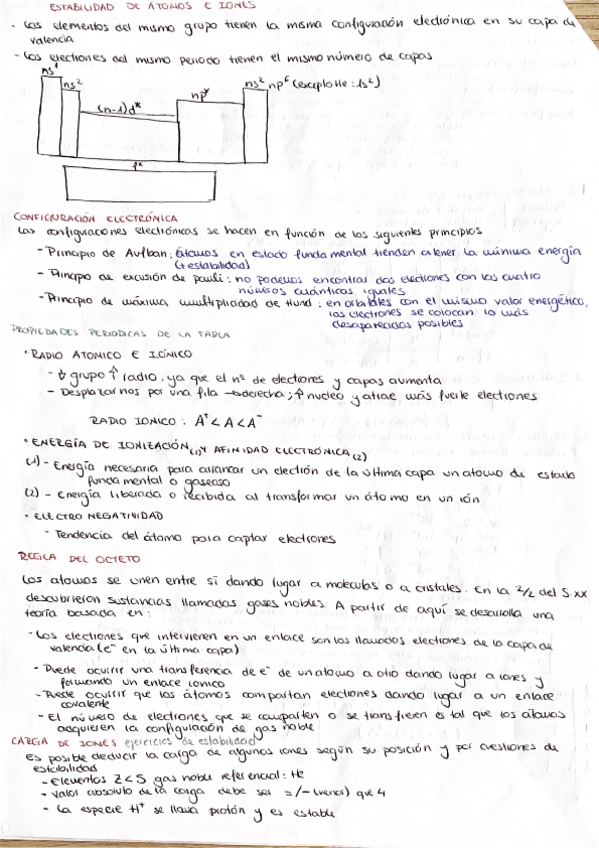 ESTABILIDAD DE ÁTOMOS E IONES
- Los elementos del mismo grupo tienen la misma configuración electrónica en su capa de
valencia
- Los electrones del mismo periodo tienen el mismo número de capas
ns¹
ns²
(n-1)dˣ
npʸ
ns² np⁶ (excepto He: 1s²)
fˣ
CONFIGURACIÓN ELECTRÓNICA
Las configuraciones electrónicas se hacen en función de los siguientes principios
- Principio de Aufban: átomos en estado fundamental tienden a tener la mínima energía
(+ estabilidad)
- Principio de excusión de pauli: no podemos encontrar dos electrones con los cuatro
números cuánticos iguales
- Principio de máxima multiplicidad de Hund: en orbitales con el mismo valor energético,
los electrones se colocan lo más
desapareados posibles
PROPIEDADES PERIODICAS DE LA TABLA
• RADIO ATOMICO E IÓNICO
- ↓ grupo ↑ radio, ya que el nº de electrones y capas aumenta
- Desplazarnos por una fila → derecha; ↑ nucleo y atrae más fuerte electrones
RADIO IONICO: A⁺ < A < A⁻
• ENERGÍA DE IONIZACIÓN (1) Y AFINIDAD ELECTRÓNICA (2)
(1) - Energía necesaria para arrancar un electrón de la última capa un atomo de estado
fundamental o gaseoso
(2) - Energía liberada o recibida al transformar un átomo en un ión
• ELECTRO NEGATIVIDAD
- Tendencia del átomo para captar electrones
REGLA DEL OCTETO
Los átomos se unen entre sí dando lugar a moleculas o a cristales. En la 2/2 del S.XX
descubrieron sustancias llamadas gases nobles. A partir de aquí se desarrolla una
teoría basada en:
- Los electrones que intervienen en un enlace son los llamados electrones de la capa de
valencia (e⁻ en la última capa)
- Puede ocurrir una transferencia de e⁻ de un atomo a otro dando lugar a iones y
formando un enlace ionico
- Puede ocurrir que los átomos compartan electrones dando lugar a un enlace
covalente
- El número de electrones que se comparten o se transfieren es tal que los átomos
adquieren la configuración de gas noble
CARGA DE IONES ejercicios de estabilidad
Es posible deducir la carga de algunos iones según su posición y por cuestiones de
estabilidad
- Elementos Z<5 gas noble referencial: He
- Valor absoluto de la carga debe ser =/- (menor) que 4
- La especie H⁺ se llama protón y es estable